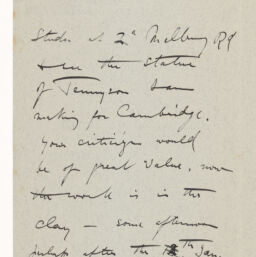 Studio at 2a Melbury Rd
& see the Statue
of Tennyson I am
making for Cambridge.
Your criticism would
be of great value, now
the work is in the
clay – some afternoon
perhaps after the 18th Jan.